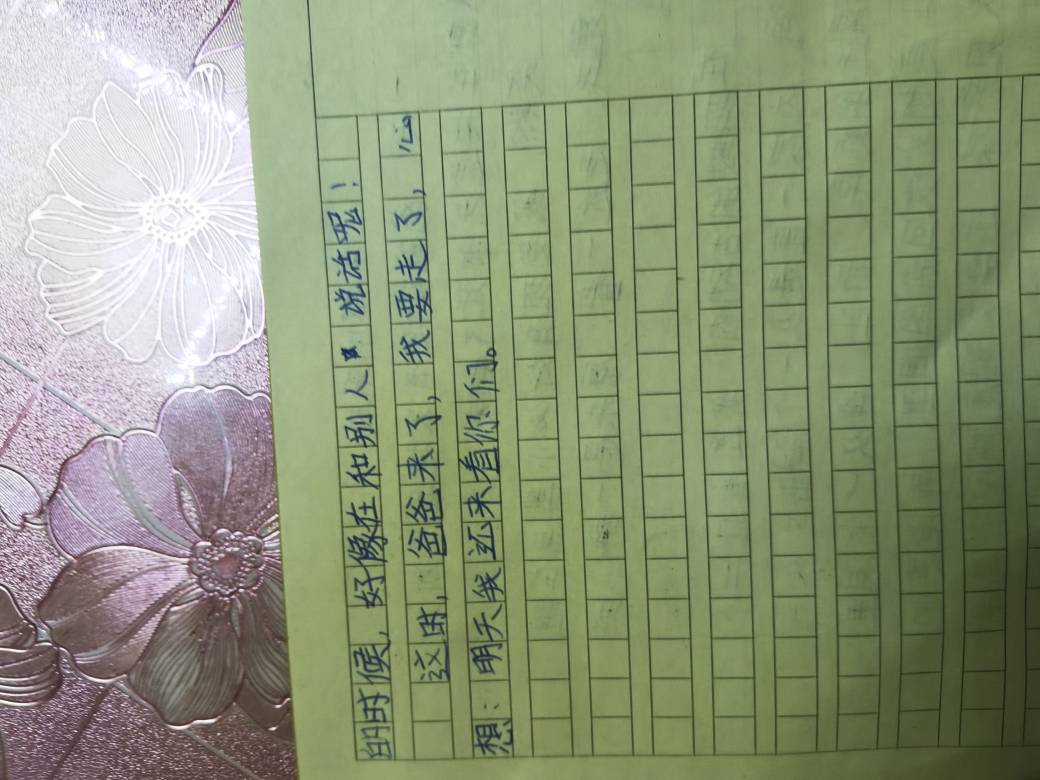 的时候，好像在和别人说话呢！
这时，爸爸来了，我要走了，心
想：明天我还来看你们。